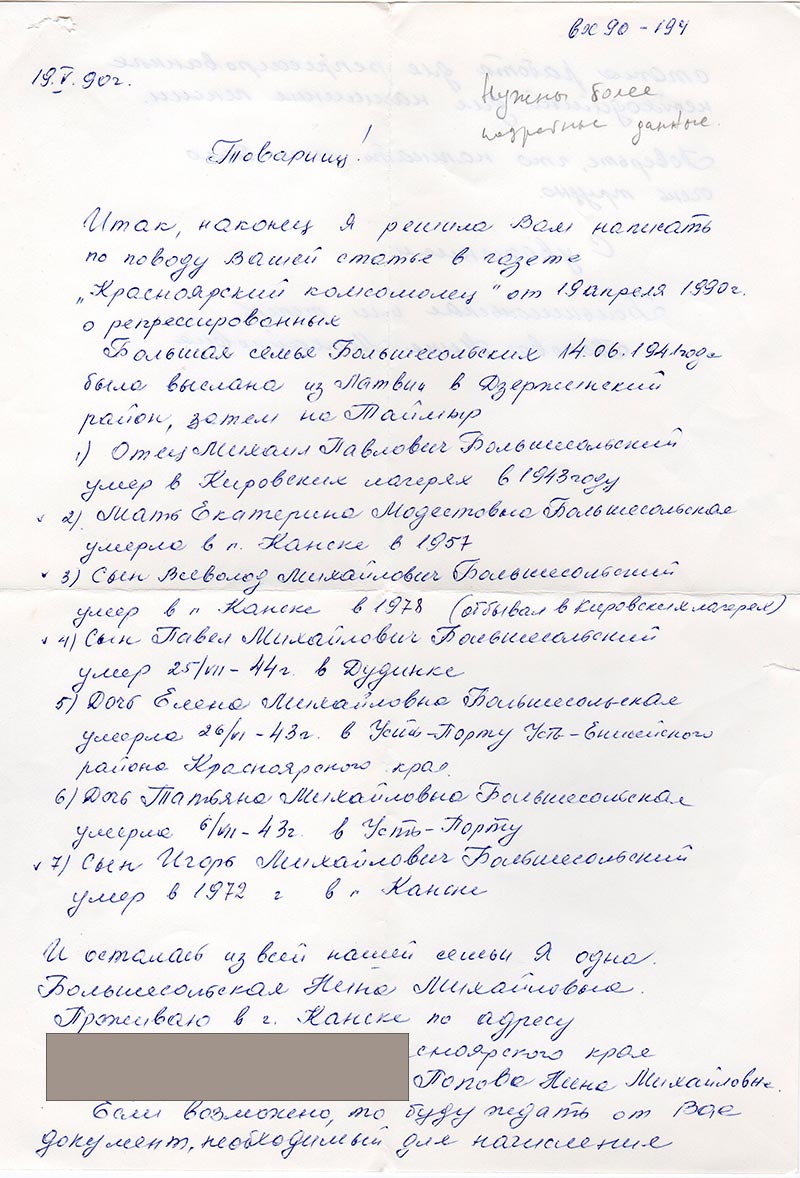 вх 90-194
19.V.90г.
Нужны более
подробные данные.
Товарищ!
Итак, наконец я решила Вам написать
по поводу Вашей статье в газете
„Красноярский комсомолец" от 19 апреля 1990г.
о репрессированных
Большая семья Большесольских 14.06.1941года
была выслана из Латвии в Дзержинский
район, затем на Таймыр
1) Отец Михаил Павлович Большесольский
умер в Кировских лагерях в 1943 году
✓ 2) Мать Екатерина Модестовна Большесольская
умерла в г. Канске в 1957
✓ 3) Сын Всеволод Михайлович Большесольский
умер в г Канске в 1978 (отбывал в Кировских лагерях)
✓ 4) Сын Павел Михайлович Большесольский
умер 25/VII-44г. в Дудинке
5) Дочь Елена Михайловна Большесольская
умерла 26/VI-43г. в Усть-Порту Усть-Енисейского
района Красноярского края
6) Дочь Татьяна Михайловна Большесольская
умерла 6/VII-43г. в Усть-Порту
✓ 7) Сын Игорь Михайлович Большесольский
умер в 1972 г в г Канске
И осталась из всей нашей семьи Я одна.
Большесольская Нина Михайловна.
Проживаю в г. Канске по адресу
сноярского края
Попова Нина Михайловна.
Если возможно, то буду ждать от Вас
документ, необходимый для начисления